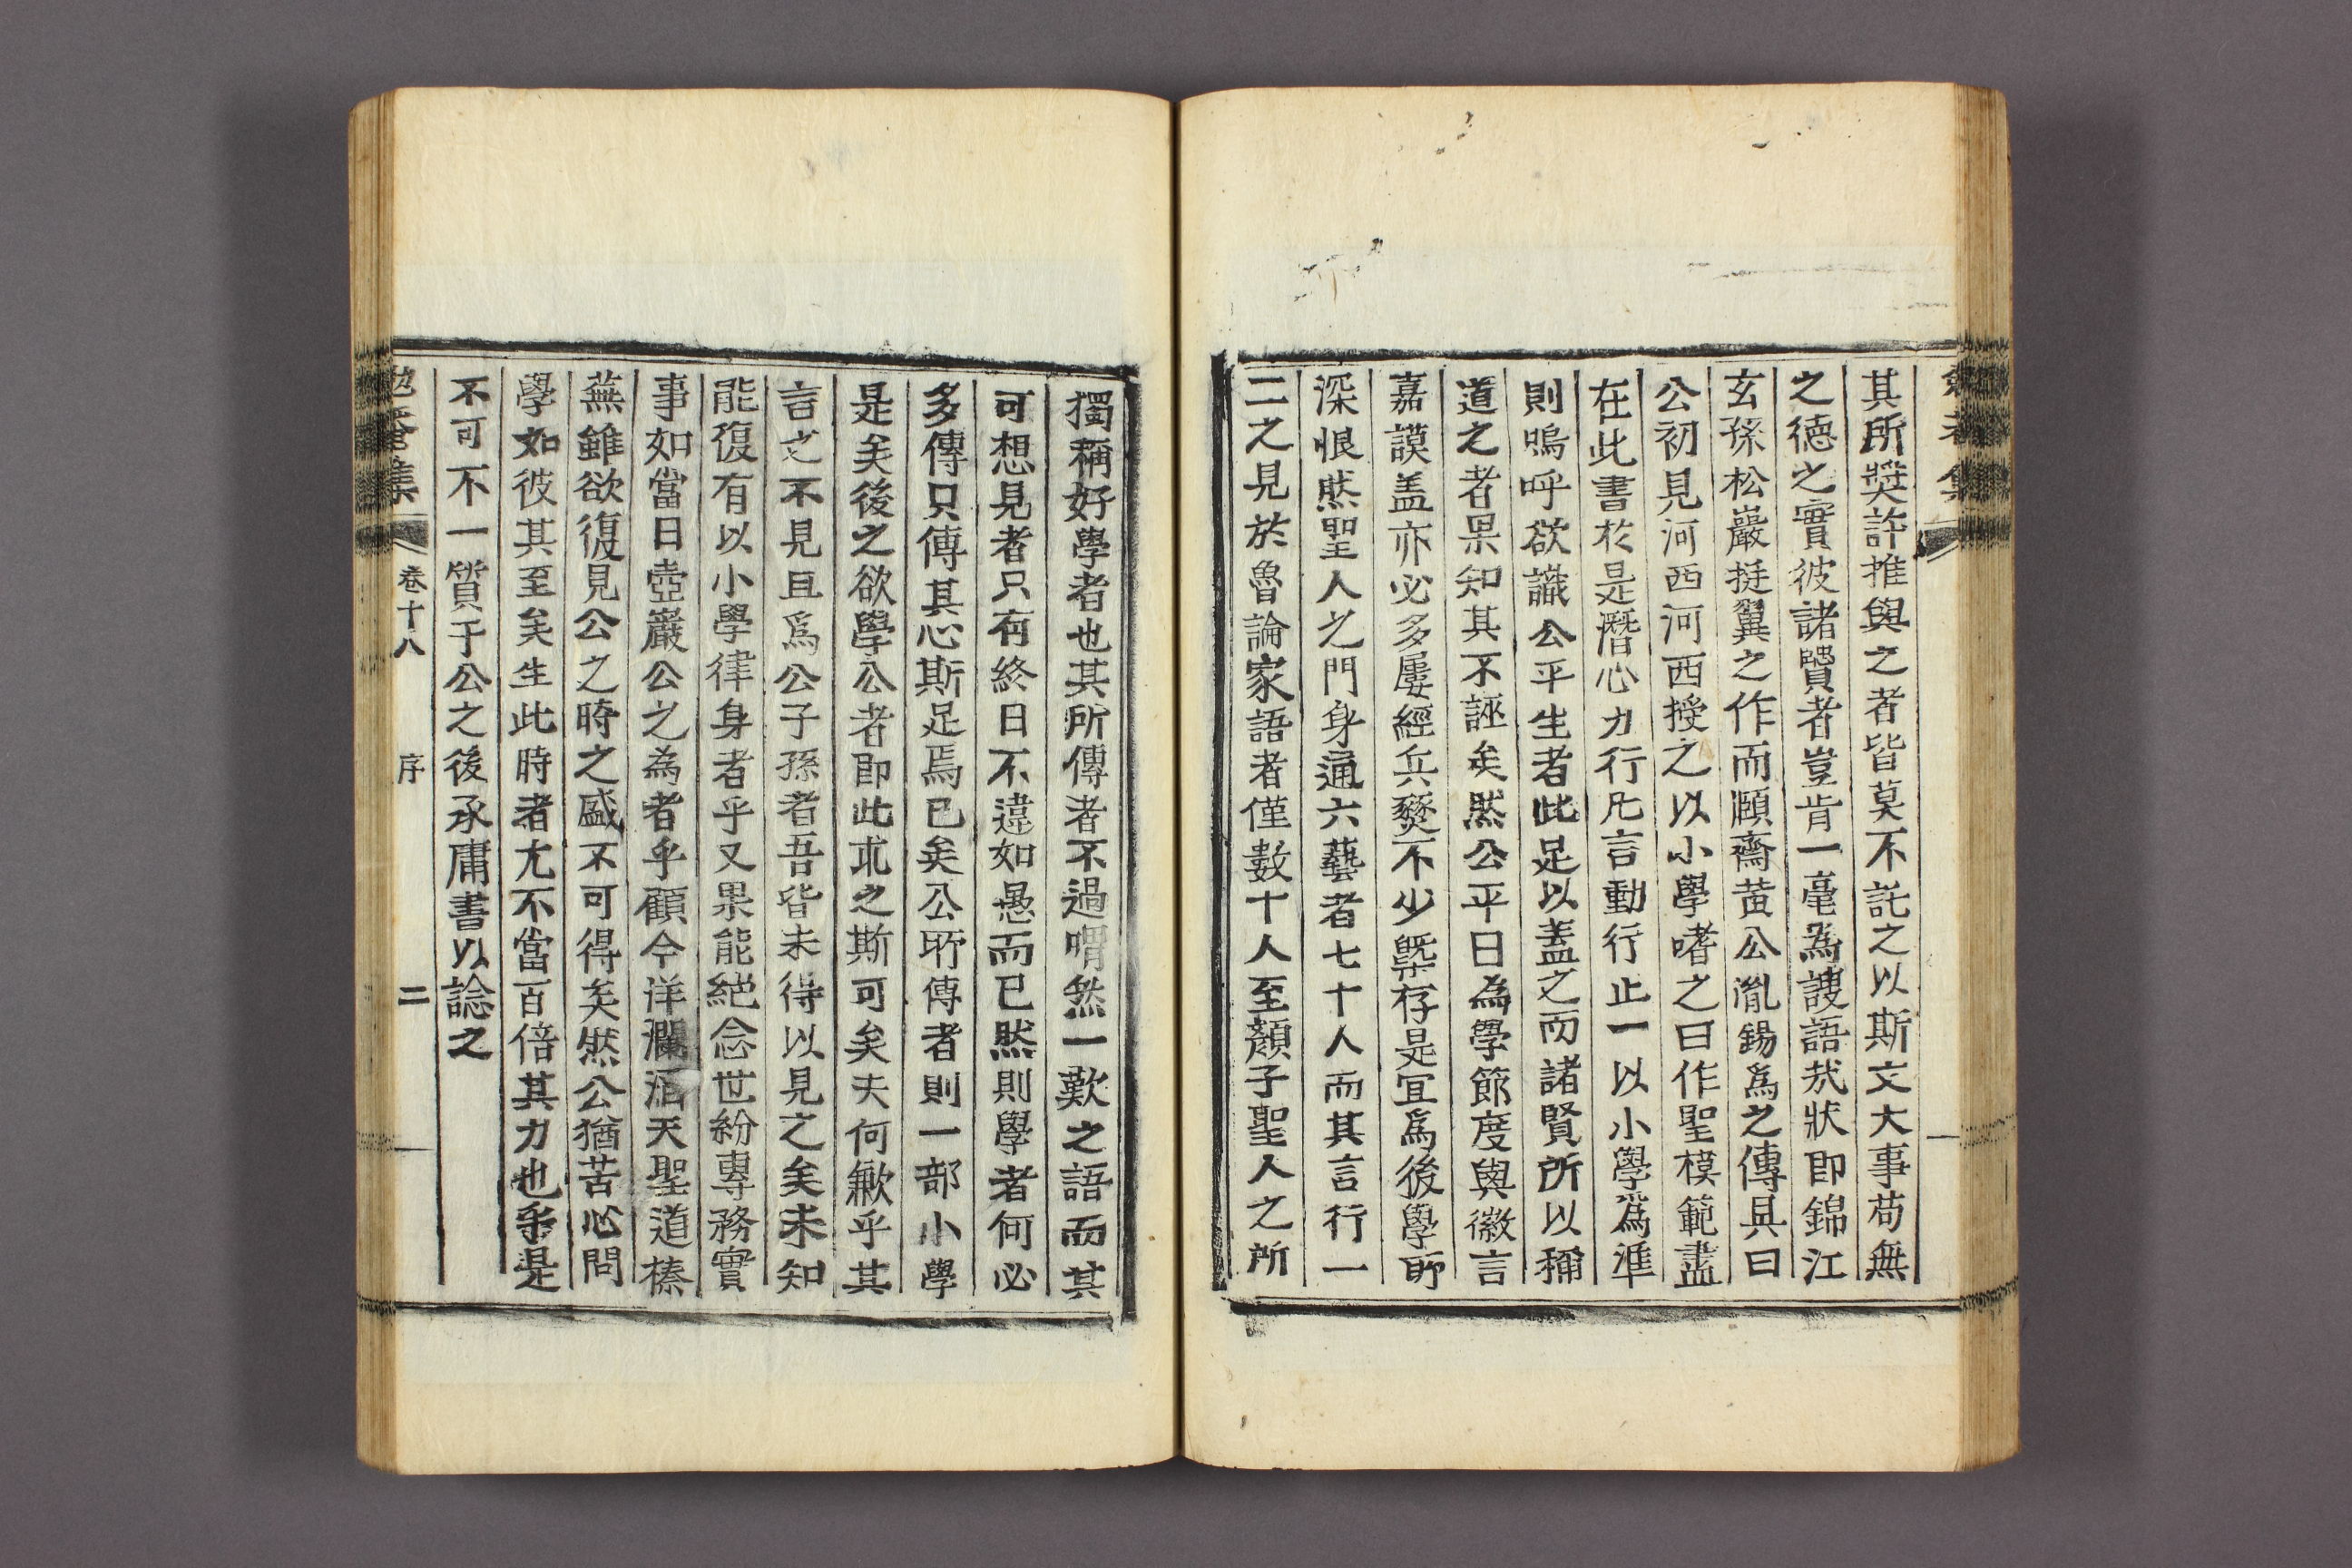 其所奬許推與之者皆莫不託之以斯文大事苟無
之德之實彼諸賢者豈肯一毫為謏語㢤狀即錦江
玄孫松巖挺翼之作而頤齋黃公胤錫爲之傳具曰
公初見河西河西授之以小學嗜之曰作聖模範盡
在此書於是潛心力行凡言動行止一以小學爲準
則嗚呼欲識公平生者此足以盖之而諸賢所以稱
道之者果知其不誣矣然公平日為學節度與徽言
嘉謨盖亦必多屢經兵燹不少槩存是冝爲後學所
深恨然聖人之門身通六藝者七十人而其言行一
二之見於魯論家語者僅數十人至顏子聖人之所
獨稱好學者也其所傳者不過喟然一歎之語而其
可想見者只有終日不違如愚而已然則學者何必
多傳只傳其心斯足焉已矣公所傳者則一部小學
是矣後之欲學公者即此求之斯可矣夫何歉乎其
言之不見且爲公子孫者吾皆未得以見之矣未知
能復有以小學律身者乎又果能絕念世紛專務實
事如當日壺巖公之為者乎顧今洋瀾滔天聖道榛
蕪雖欲復見公之時之盛不可得矣然公猶苦心問
學如彼其至矣生此時者尤不當百倍其力也乎是
不可不一質于公之後承庸書以諗之
勉菴集 卷十八 序 二